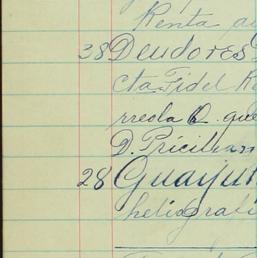 Renta
38 Deudores
cta Fidel
rreola O. que
D. Pricilian
28 Guayu
heliografi